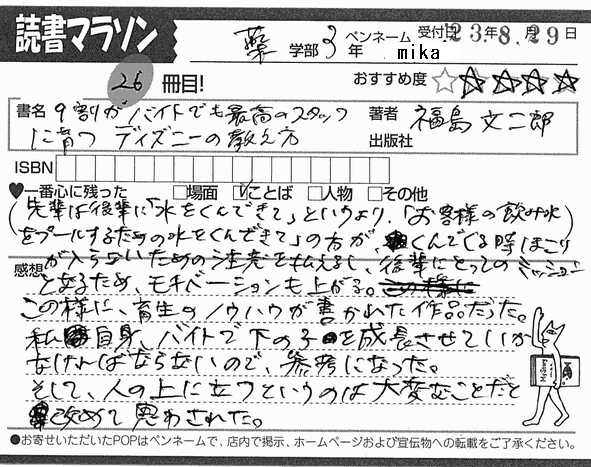 読書マラソン
薬 学部 3 年 ペンネーム mika 受付日 23年8月29日
26 冊目!
おすすめ度 ☆☆☆☆☆
書名 9割がバイトでも最高のスタッフ
に育つ ディズニーの教え方
著者 福島 文二郎
出版社
ISBN
♥一番心に残った □場面 ☑ことば □人物 □その他
(先輩は後輩に「水をくんできて」というより、「お客様の飲み水
をプールするための水をくんできて」の方が、くんでくる時ほこり
が入らないための注意を払えるし、後輩にとってのミッション
感想
となるため、モチベーションも上がる。
この様に、育生のノウハウが書かれた作品だった。
私自身、バイトで下の子を成長させていか
なければならないので、参考になった。
そして、人の上に立つというのは大変なことだと
改めて思わされた。
●お寄せいただいたPOPはペンネームで、店内で掲示、ホームページおよび宣伝物への転載をご了承ください。